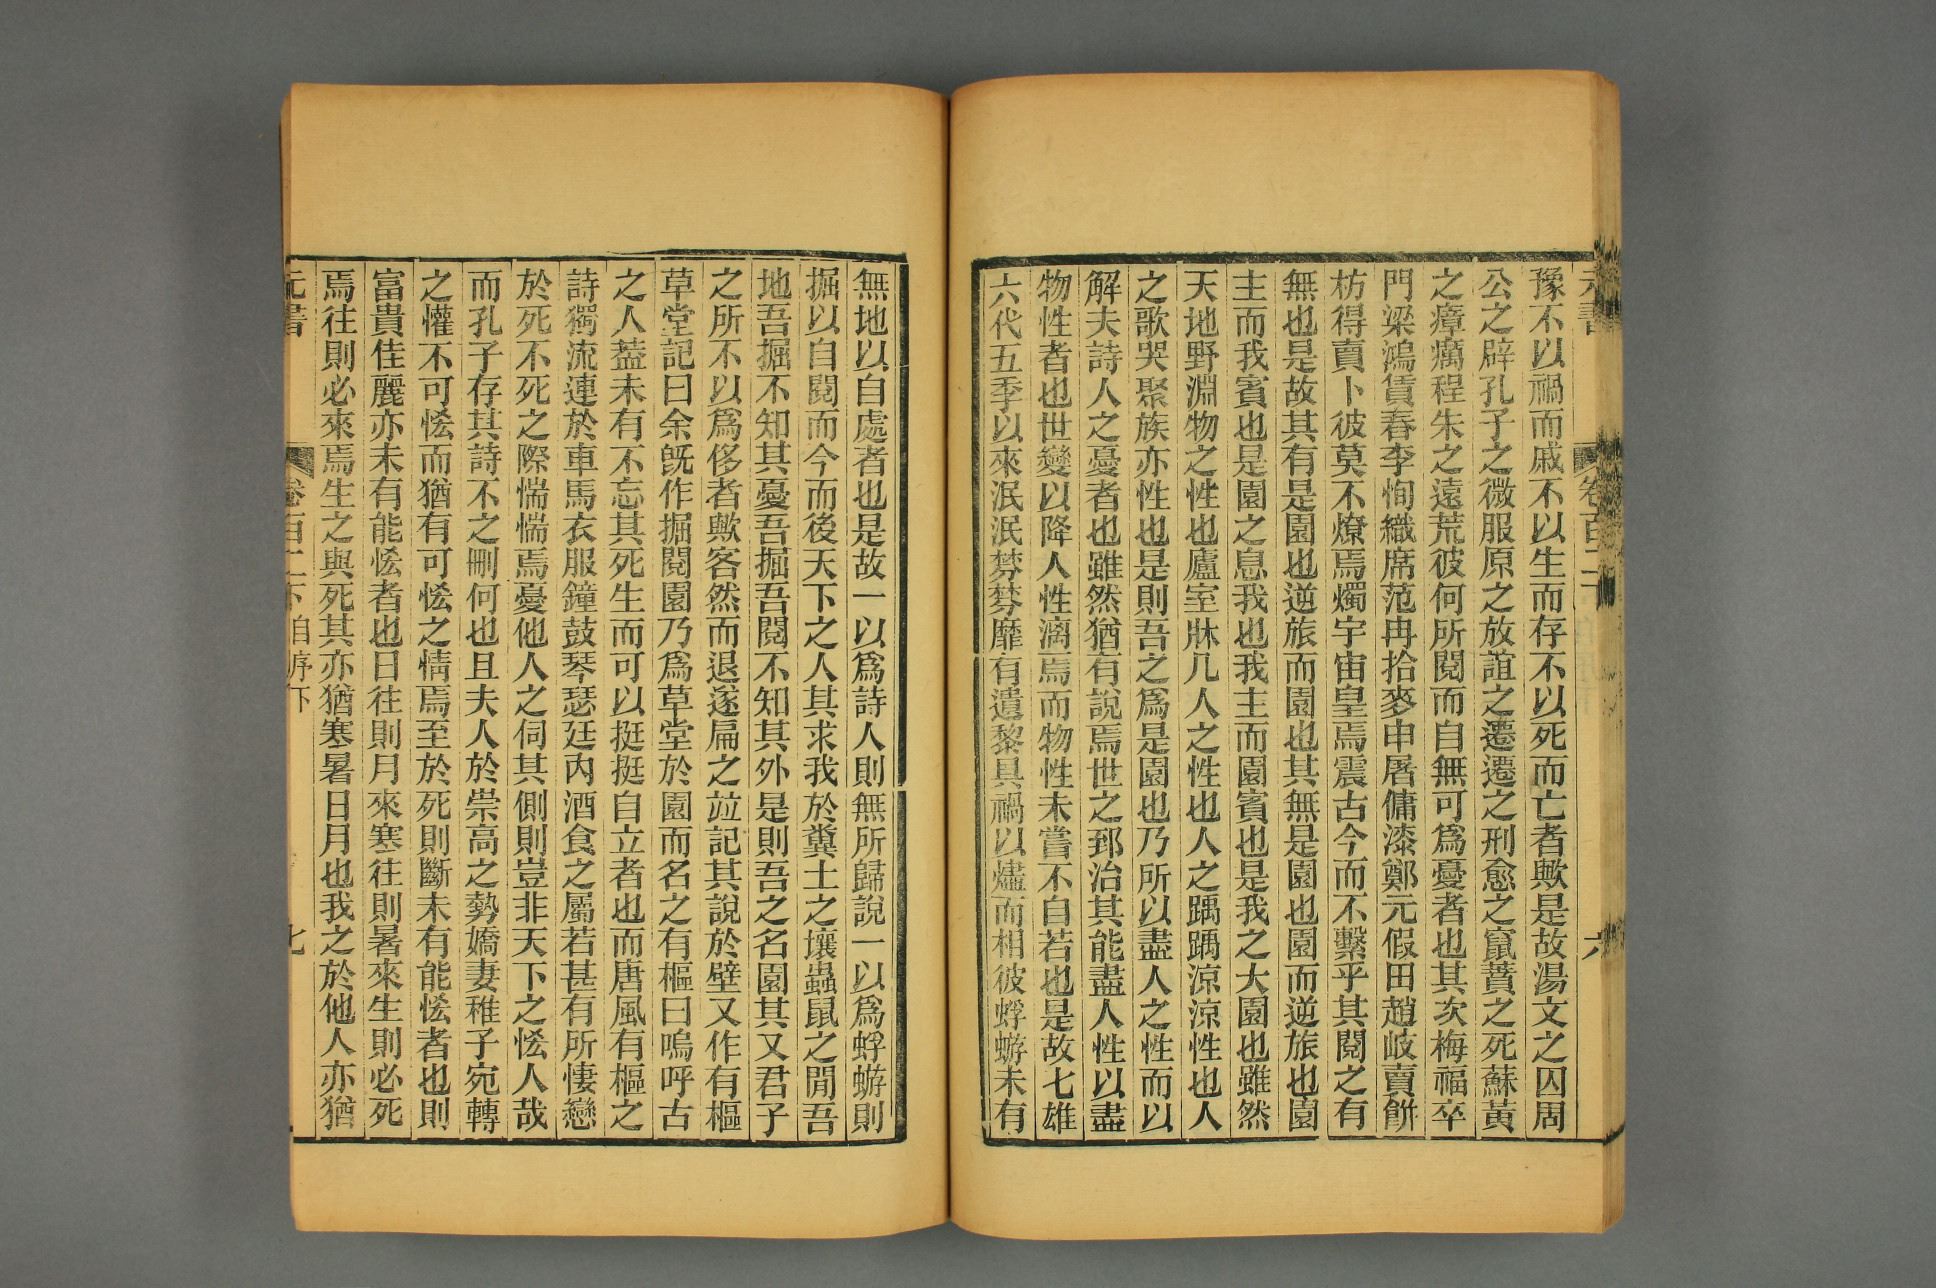 元書 卷百二 六
豫不以禍而戚不以生而存不以死而亡者歟是故湯文之囚周
公之辟孔子之微服原之放誼之遷遷之刑愈之竄蕡之死蘇黃
之瘴癘程朱之遠荒彼何所閱而自無可爲憂者也其次梅福卒
門梁鴻賃舂李恂織席范冉拾麥申屠傭漆鄭元假田趙岐賣餅
枋得賣卜彼莫不燎焉燭宇宙皇焉震古今而不繫乎其閱之有
無也是故其有是園也逆旅而園也其無是園也園而逆旅也園
主而我賓也是園之息我也我主而園賓也是我之大園也雖然
天地野淵物之性也廬室牀几人之性也人之踽踽涼涼性也人
之歌哭聚族亦性也是則吾之爲是園也乃所以盡人之性而以
解夫詩人之憂者也雖然猶有說焉世之郅治其能盡人性以盡
物性者也世變以降人性漓焉而物性未嘗不自若也是故七雄
六代五季以來泯泯棼棼靡有遺黎具禍以燼而相彼蜉蝣未有
無地以自處者也是故一以爲詩人則無所歸說一以爲蜉蝣則
掘以自閱而今而後天下之人其求我於糞土之壤蟲鼠之閒吾
地吾掘不知其憂吾掘吾閱不知其外是則吾之名園其又君子
之所不以爲侈者歟客然而退遂扁之竝記其說於壁又作有樞
草堂記曰余旣作掘閱園乃爲草堂於園而名之有樞曰嗚呼古
之人葢未有不忘其死生而可以挺挺自立者也而唐風有樞之
詩獨流連於車馬衣服鐘鼓琴瑟廷內酒食之屬若甚有所悽戀
於死不死之際惴惴焉憂他人之伺其側則豈非天下之恡人哉
而孔子存其詩不之刪何也且夫人於崇高之勢嬌妻稚子宛轉
之懽不可恡而猶有可恡之情焉至於死則斷未有能恡者也則
富貴佳麗亦未有能恡者也日往則月來寒往則暑來生則必死
焉往則必來焉生之與死其亦猶寒暑日月也我之於他人亦猶
元書 卷百二下 自序下 七